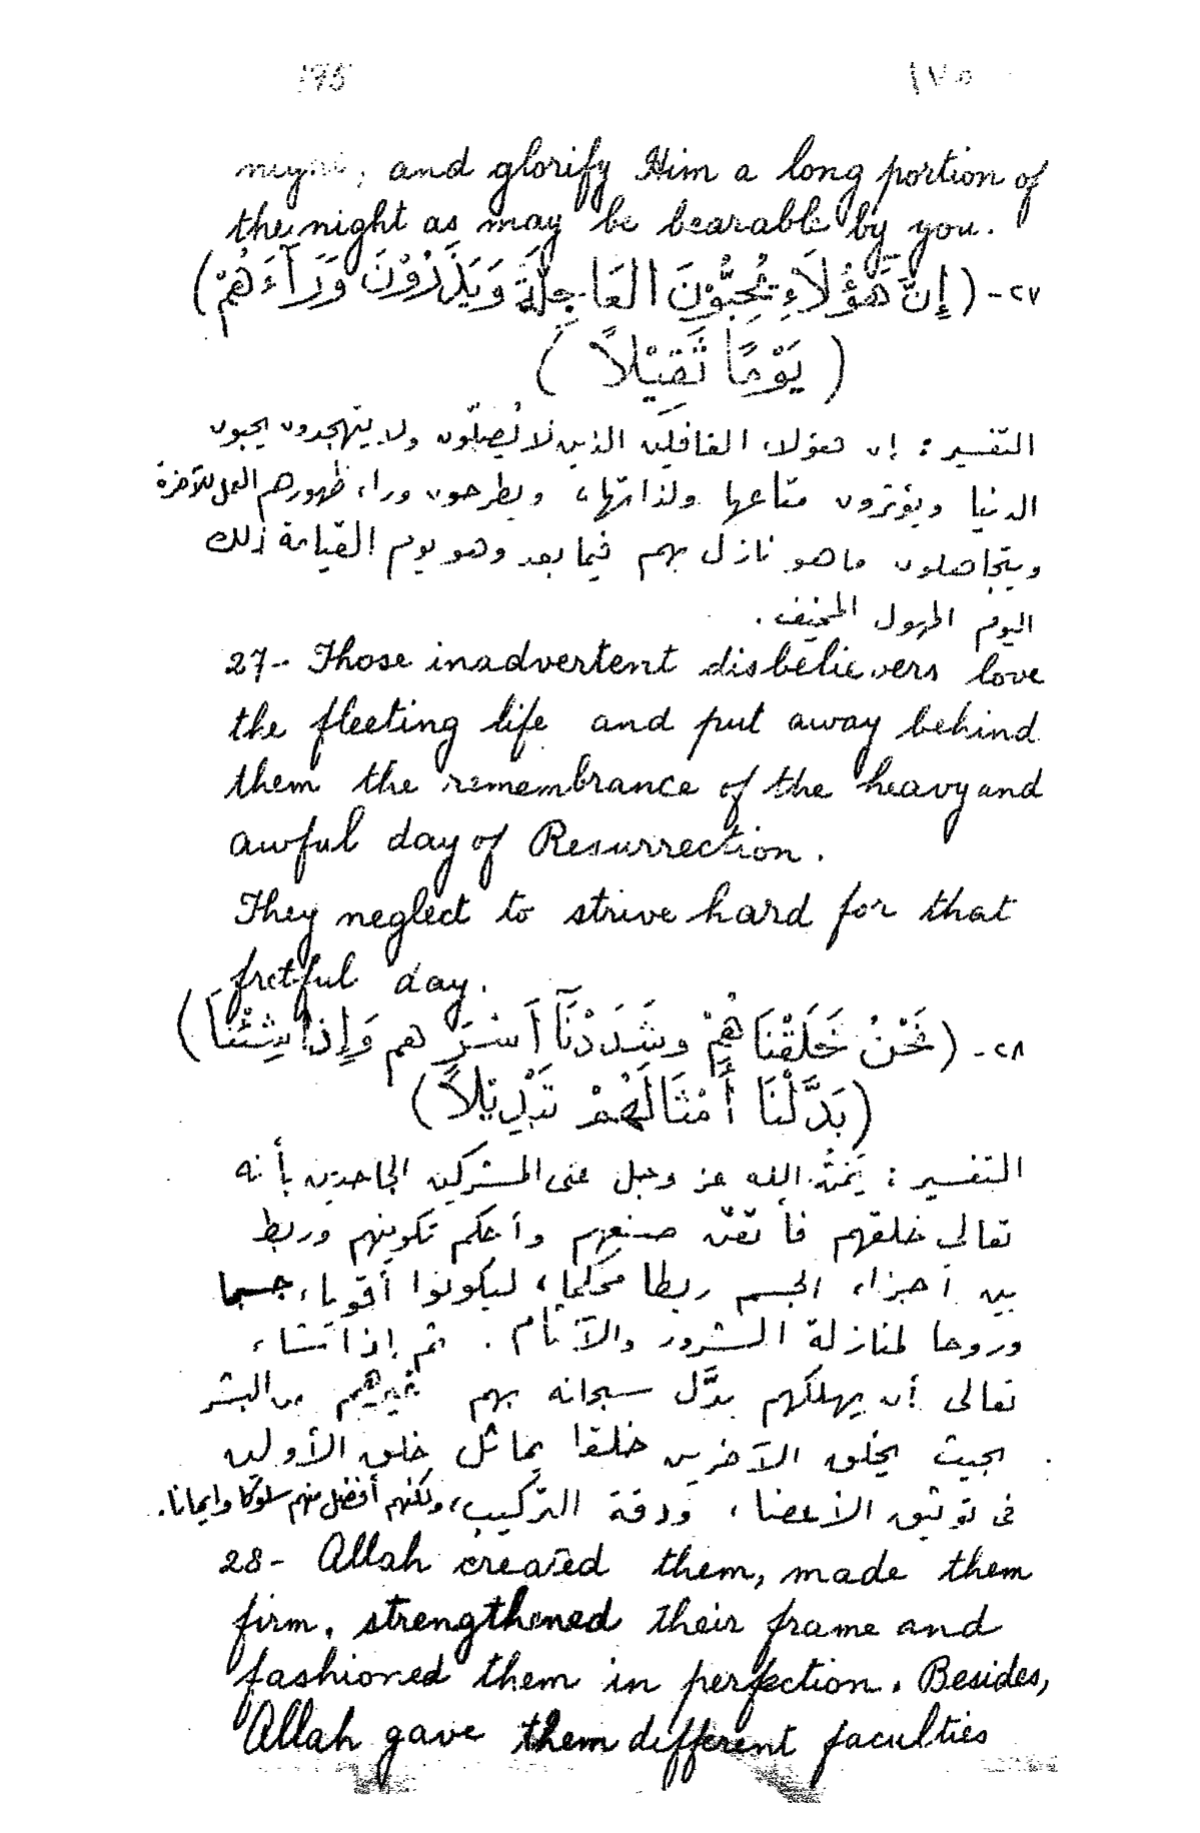 175 ١٧٥
night, and glorify Him a long portion of
the night as may be bearable by you.
٢٧- (إِنَّ هَؤُلَاءِ يُحِبُّوْنَ العَاجِلَةَ وَيَذَرُوْنَ وَرَآءَهُمْ)
(يَوْمًا ثَقِيْلاً)
التفسير: إن هؤلاء الغافلين الذين لا يُصلّون ولا يتهجدون يحبون
الدنيا ويؤثرون متاعها ولذاتها، ويطرحون وراء ظهورهم العمل للآخرة
ويتجاهلون ما هو نازل بهم فيما بعد وهو يوم القيامة ذلك
اليوم المهول المخيف.
27- Those inadvertent disbelievers love
the fleeting life and put away behind
them the remembrance of the heavy and
awful day of Resurrection.
They neglect to strive hard for that
fretful day.
٢٨- (نَحْنُ خَلَقْنَاهُمْ وشَدَدْنَآ أَسْرَهم وَإِذا شِئْنَا)
(بَدَّلْنَا أَمْثَالَهُمْ تَبْدِيْلاً)
التفسير: يَمُنُّ الله عز وجل على المشركين الجاحدين بأنه
تعالى خلقهم فأتقن صنعهم وأحكم تكوينهم وربط
بين أجزاء الجسم ربطا محكما، ليكونوا أقوياء جسما
وروحا لمنازلة الشرور والآثام. ثم إذا شاء
تعالى أن يهلكهم بدَّل سبحانه بهم غيرهم من البشر
بحيث يخلق الآخرين خلقا يماثل خلق الأولين
في توثيق الأعضاء، ودقة التركيب، ولكنهم أفضل منهم سلوكا وإيمانا.
28- Allah created them, made them
firm, strengthened their frame and
fashioned them in perfection. Besides,
Allah gave them different faculties